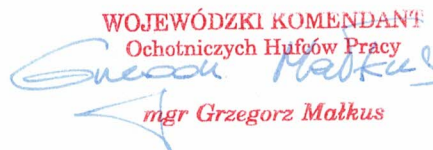 WOJEWÓDZKI KOMENDANT
Ochotniczych Hufców Pracy
Grzegorz Małkus
mgr Grzegorz Małkus